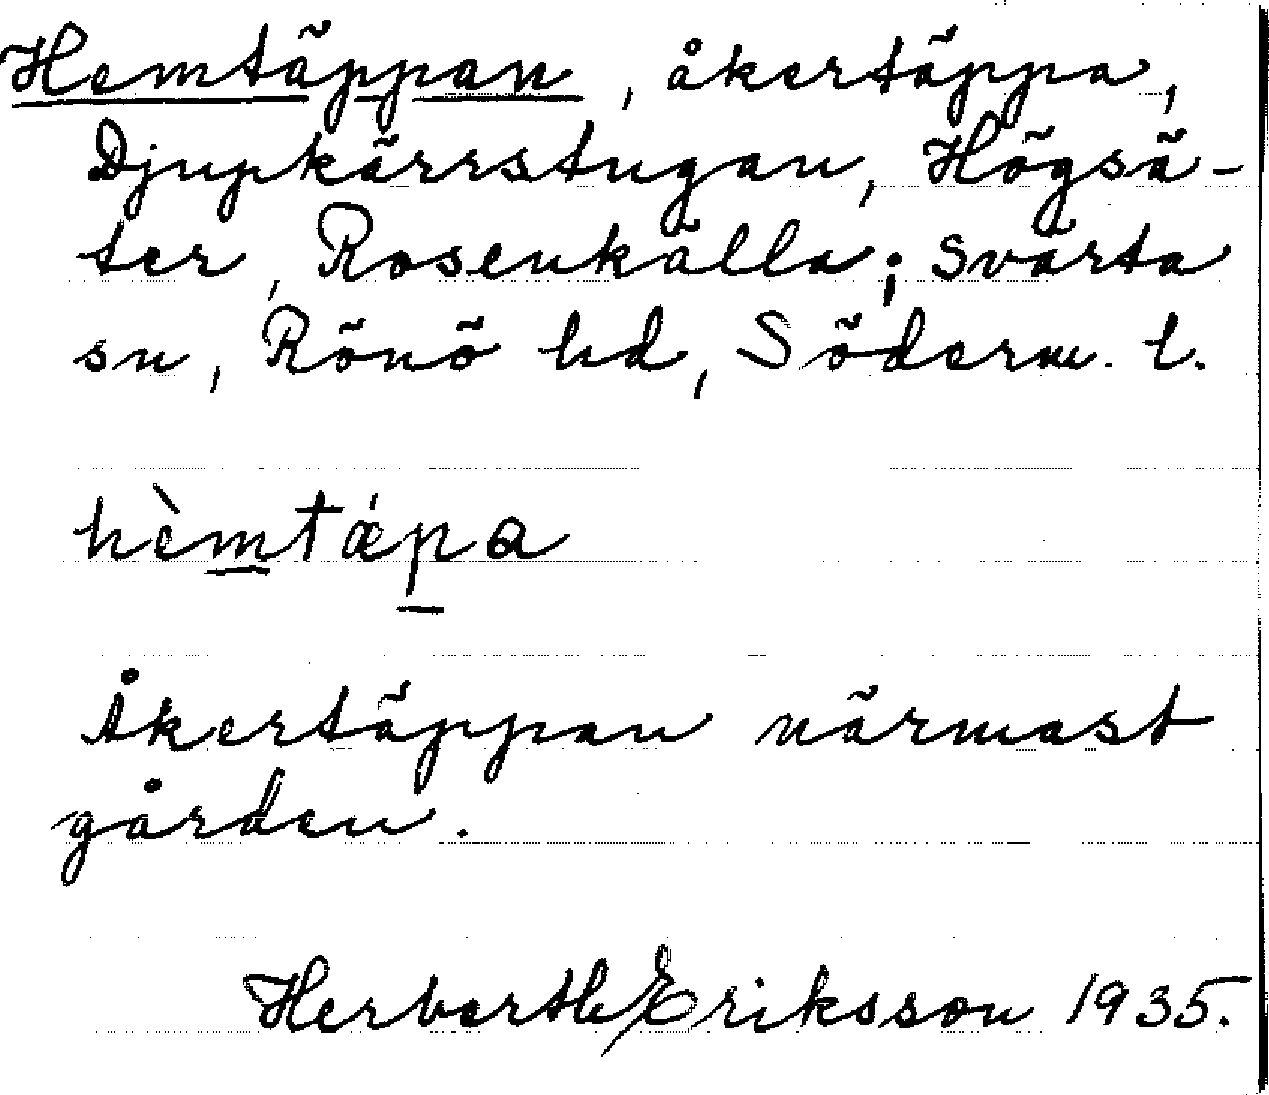 Hemtäppan, åkertäppa,
Djupkärrstugan, Högsä-
ter, Rosenkälla; Svärta
sn, Rönö hd, Söderm. l.
hèmtǽpa
Åkertäppan närmast
gården.
Herberth Eriksson 1935.